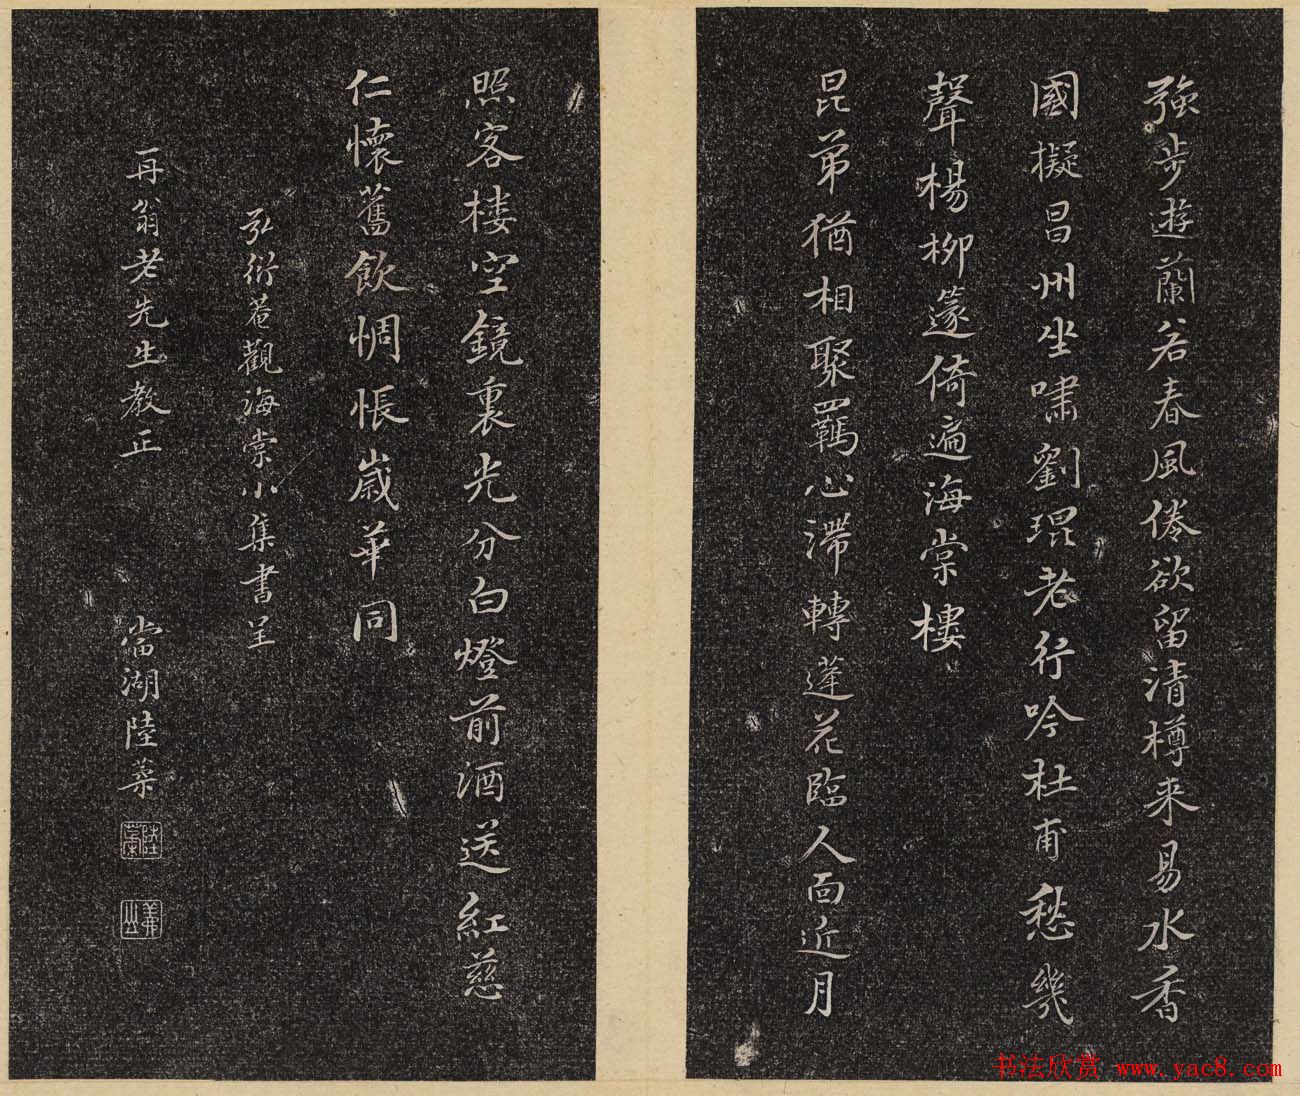 強步遊蘭若春風倦欲留清樽来易水香
國擬昌州坐嘯劉琨老行吟杜甫愁幾
聲楊柳篴倚遍海棠樓
昆弟猶相聚羈心滯轉蓬花臨人面近月
照客樓空鏡裏光分白燈前酒送紅慈
仁懷舊飲惆悵歲華同
弘衍菴觀海棠小集書呈
再翁老先生教正
當湖陸葇
陸葇
義山
书法欣赏 www.yac8.com